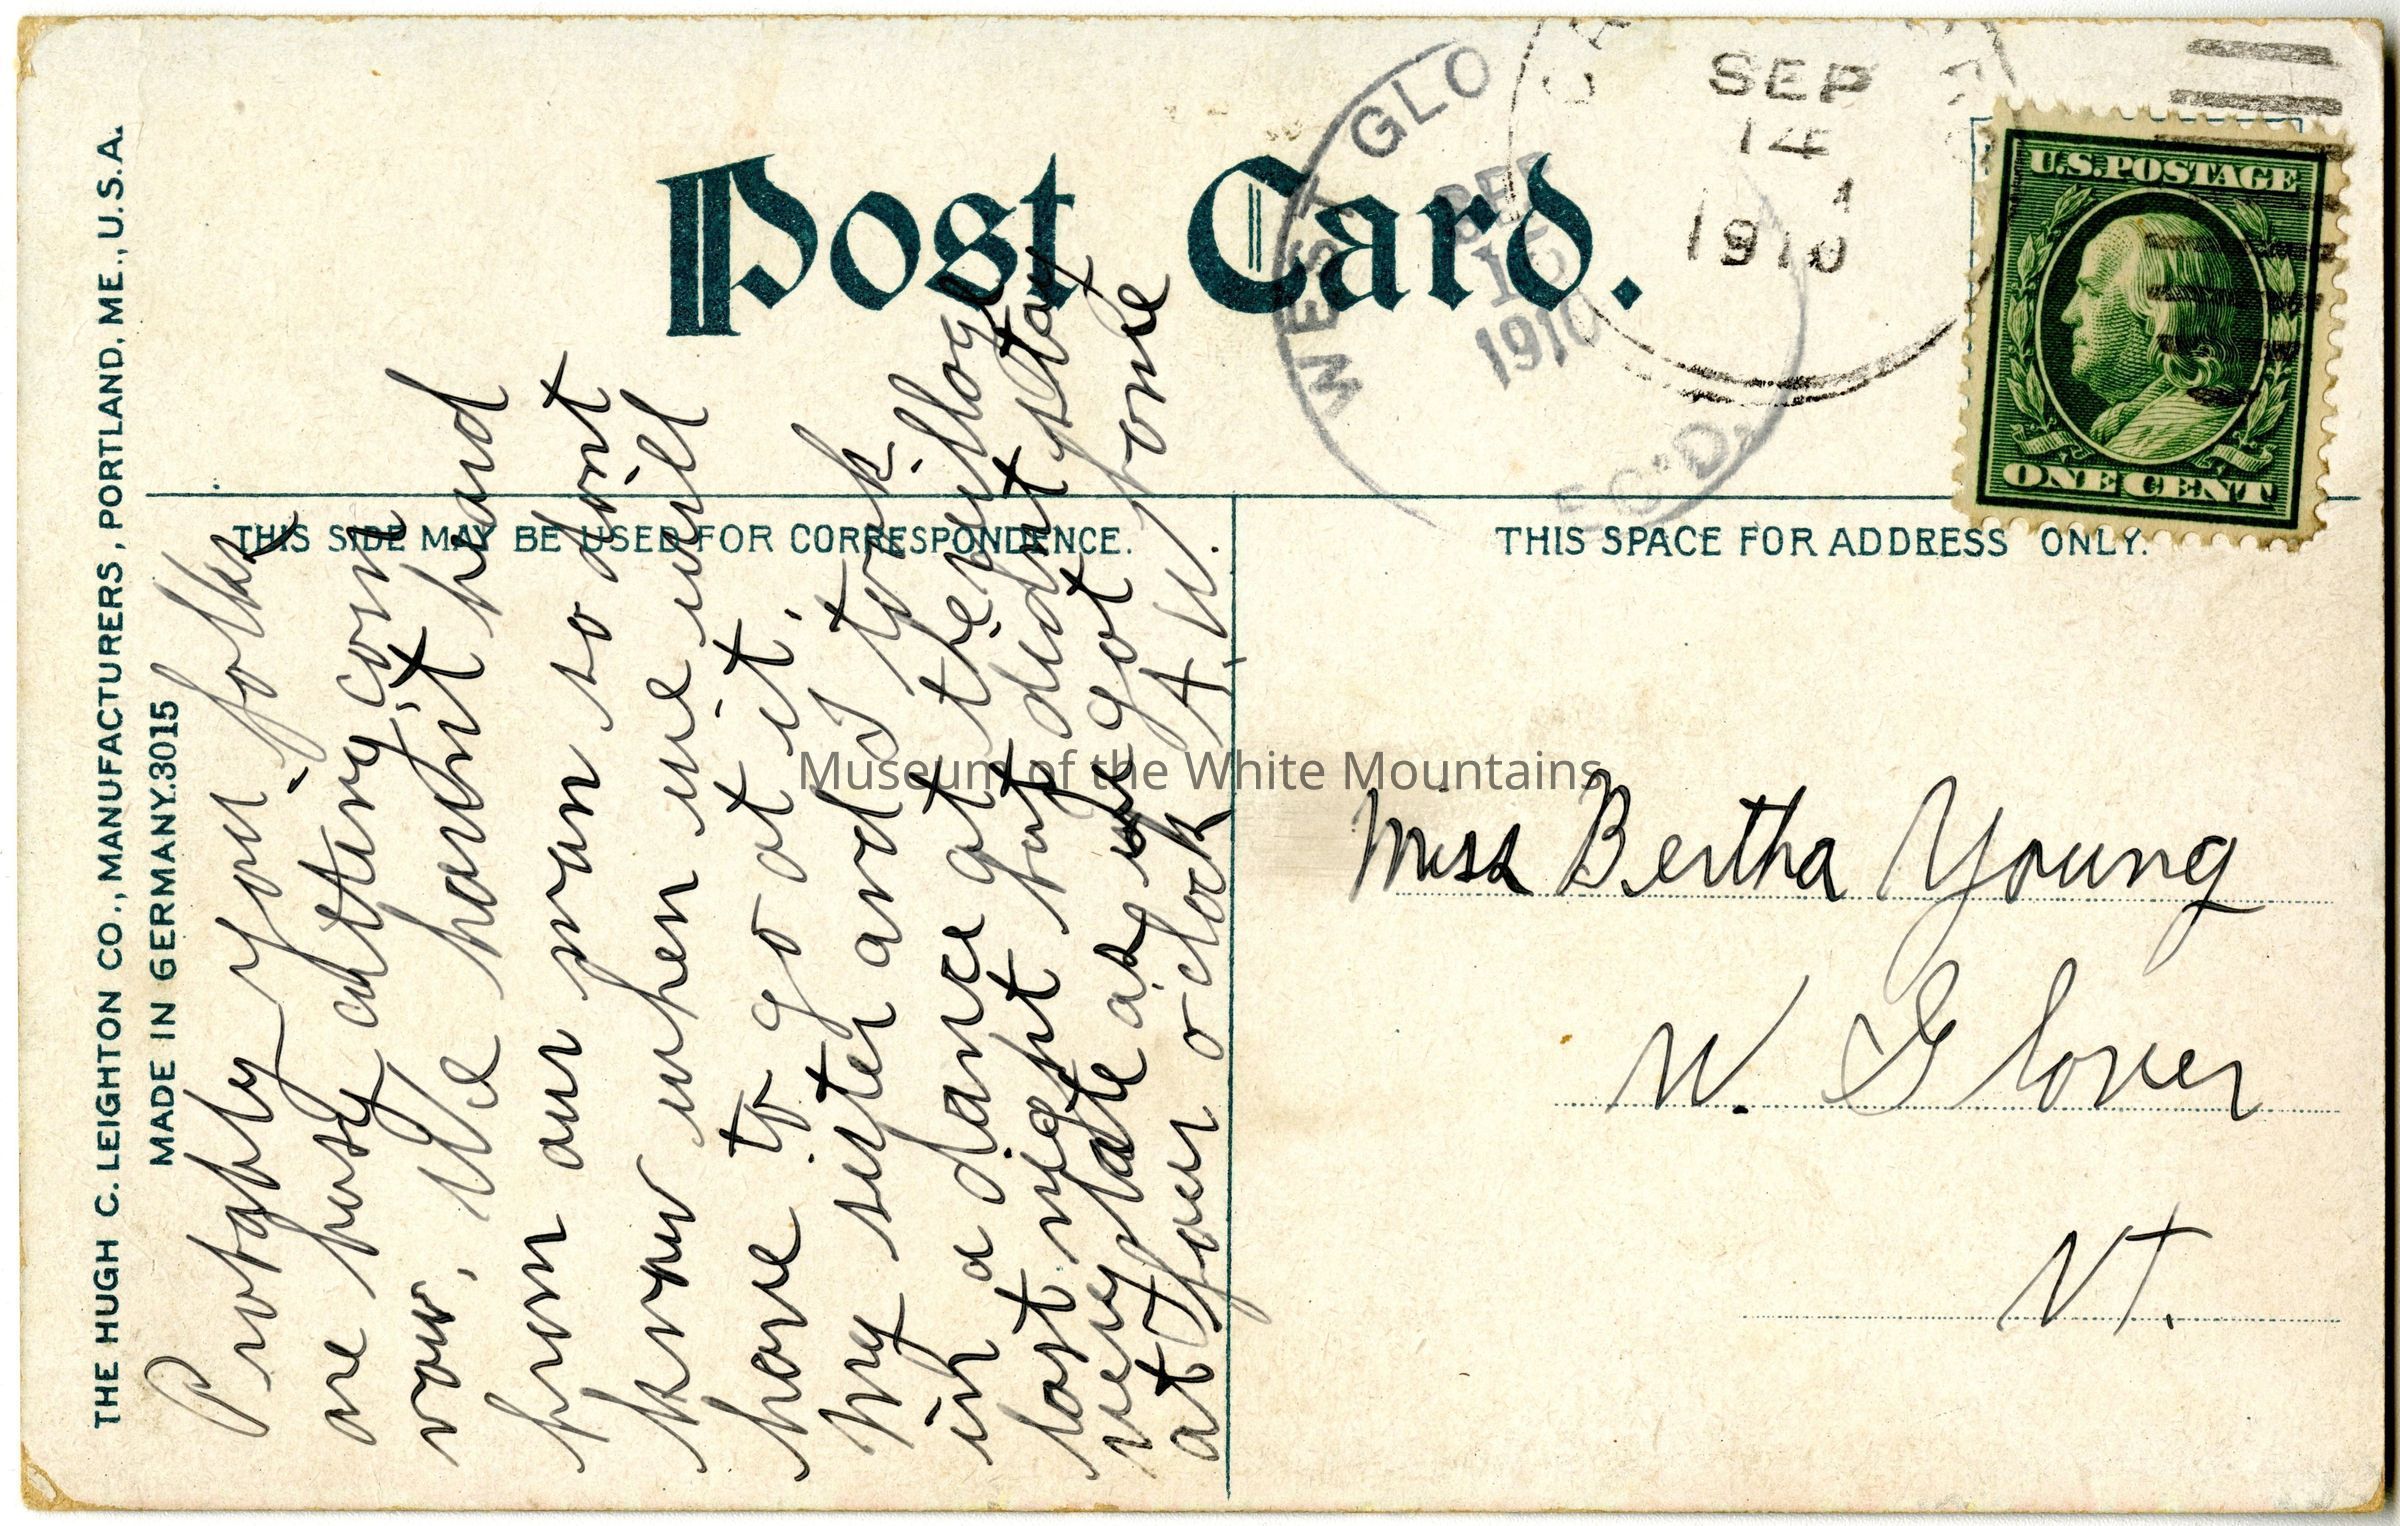 THE HUGH C. LEIGHTON CO., MANUFACTURERS, PORTLAND, ME., U.S.A.
MADE IN GERMANY. 3015
Post Card.
WEST GLO
SEP
15
1910
EC'D.
SEP
14
1
1910
U.S. POSTAGE
ONE CENT
THIS SIDE MAY BE USED FOR CORRESPONDENCE.
THIS SPACE FOR ADDRESS ONLY.
Probably your folks
are busy cutting corn
now. We havn't heard
from our man so don't
know when we will
have to go at it.
My sister and I took
in a dance at the village
last night but didn't stay
very late as we got home
at four o clock A. W.
Miss Bertha Young
W. Glover
VT.
Museum of the White Mountains